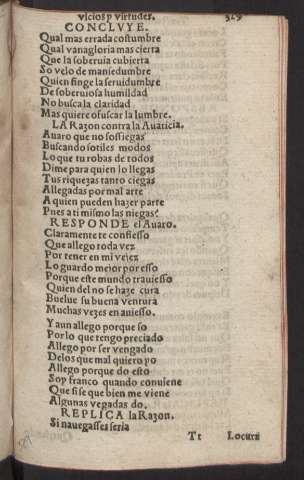 vicios y virtudes. 329
CONCLVYE.
Qual mas errada costumbre
Qual vanagloria mas cierta
Que la soberuia cubierta
So velo de mansedumbre
Quien finge la seruidumbre
De soberuiosa humildad
No busca la claridad
Mas quiere ofuscar la lumbre.
LA Razon contra la Auaricia.
Auaro que no sossiegas
Buscando sotiles modos
Lo que tu robas de todos
Dime para quien lo llegas
Tus riquezas tanto ciegas
Allegadas por mal arte
A quien pueden hazer parte
Pues a ti mismo las niegas?
RESPONDE el Auaro.
Claramente te confiesso
Que allego toda vez
Por tener en mi vejez
Lo guardo mejor por esso
Porque este mundo trauiesso
Quien del no se haze cura
Buelue su buena ventura
Muchas vezes en auiesso.
Y aun allego porque so
Por lo que tengo preciado
Allego por ser vengado
Delos que mal quiero yo
Allego porque do esto
Soy franco quando conuiene
Que si se que bien me viene
Algunas vegadas do.
REPLICA la Razon.
Si nauegasses seria
Tt Locura